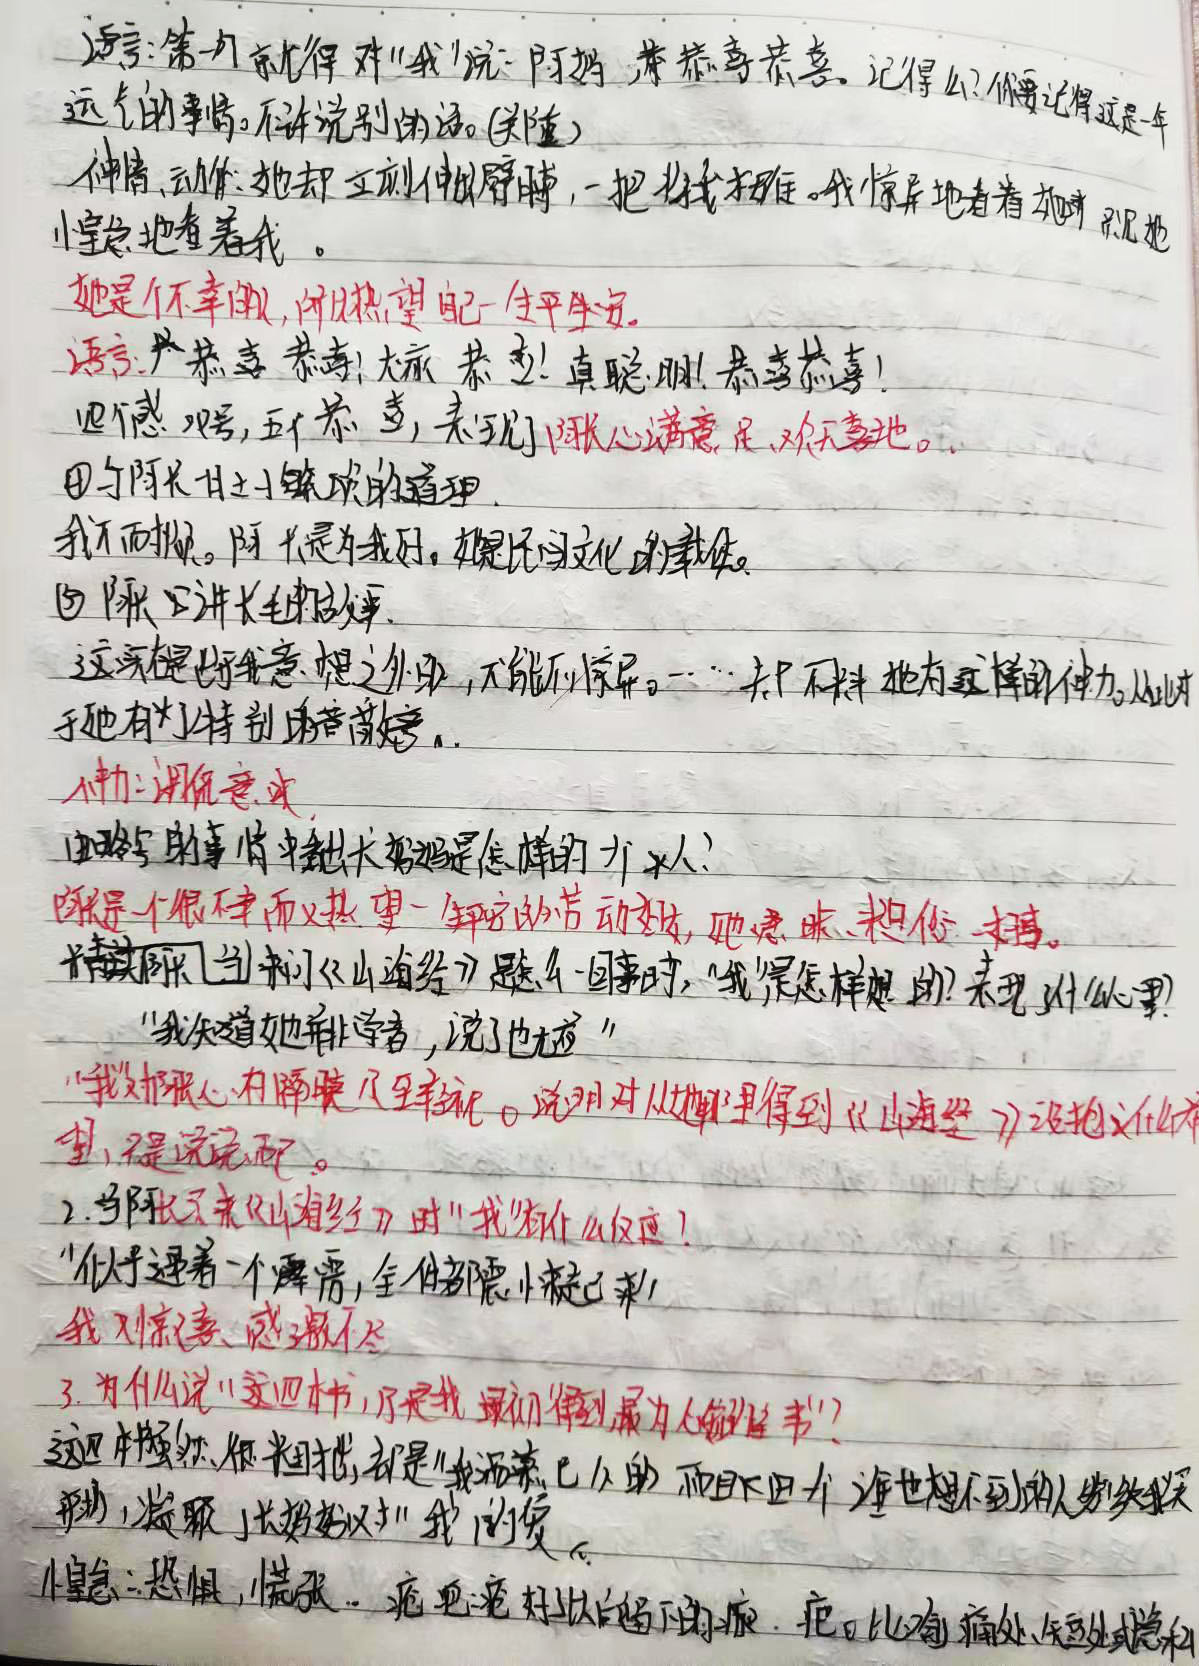 语言:第一句就得对"我"说:阿妈,恭恭喜恭喜。记得么?你要记得这是一年
运气的事情。不许说别的话。(关隆)
神情、动作:她却立刻伸出臂膊,一把将我按住。我惊异地看着她时只见她
惶急地看着我。
她是个不幸的人,所以热望自己一生平安。
语言:恭喜恭喜!大家恭喜!真聪明!恭喜恭喜!
四个感叹号,五个恭喜,表现了阿长心满意足、欢天喜地。
④写阿长讲些繁琐的道理.
我不而烦。阿长是为我好。她是民间文化的载体。
⑤阿长又讲长毛的故事.
这实在是出于我意想之外的,不能不惊异。……夫 不料她有这样的神力。从此对
于她有了特别的敬意。
神力:调侃意味
由略写的事情中看出长妈妈是怎样的一个人?
阿长是一个很不幸而又热望一生平安的劳动妇女,她愚昧、粗俗、
精读 当阿长来问《山海经》是怎么一回事时,"我"是怎样想的?表现了什么心理?
"我知道她并非学者,说了也无益"
"我"对阿长心有隔膜及至轻视。说明对从她那里得到《山海经》没抱什么希
望,只是说说而已。
2.当阿长买来《山海经》时"我"有什么反应?
"似乎遇着一个霹雳,全体都震悚起来"
我又惊喜、感激不尽
3.为什么说"这四本书,乃是我最初得到,最为心爱的宝书"?
这四本书虽然很粗拙,却是"我渴慕已久的 而且下由一个谁也想不到的人 给我买
来的,凝聚了长妈妈对"我"的爱。
惶急:恐惧,慌张.. 疮疤:疮好了以后留下的 疤。比喻痛处、短处或隐私